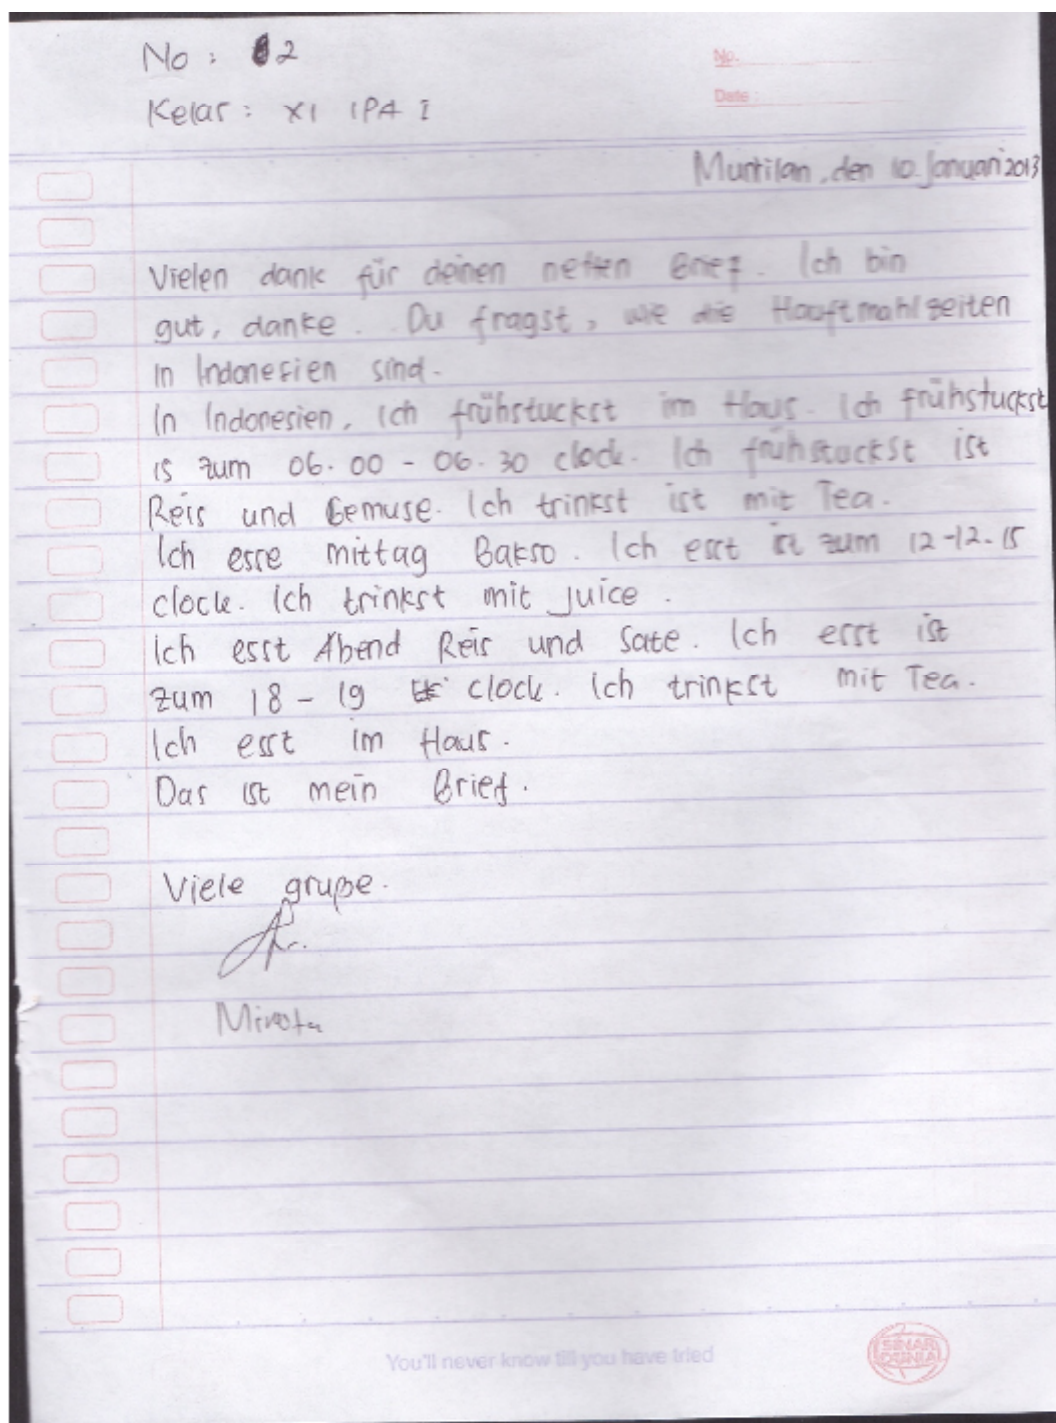 No : 2
No.
Kelas : XI IPA I
Date :
Muntilan, den 10. Januari 2013
Vielen dank für deinen netten Brief. Ich bin
gut, danke. Du fragst, wie die Hauftmahlzeiten
In Indonesien sind.
In Indonesien, Ich frühstuckst im Haus. Ich frühstuckst
is zum 06.00 - 06.30 clock. Ich fruhstuckst ist
Reis und Gemuse. Ich trinkst ist mit Tea.
Ich esse mittag Bakso. Ich esst ist zum 12-12.15
clock. Ich trinkst mit Juice.
Ich esst Abend Reis und Sate. Ich esst ist
zum 18 - 19 clock. Ich trinkst mit Tea.
Ich esst im Haus.
Das ist mein Brief.
Viele gruße.
You'll never know till you have tried
SINAR DUNIA